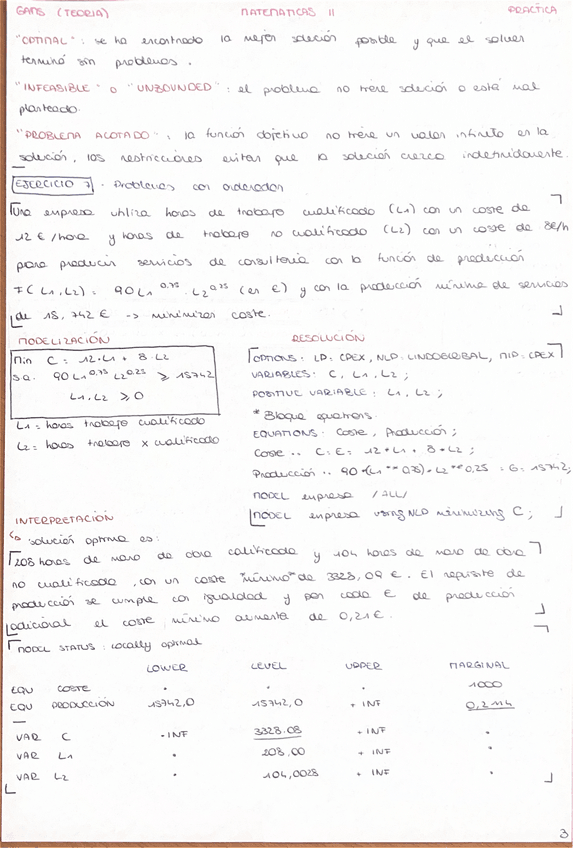 GAMS (TEORIA) MATEMATICAS II PRACTICA
"OPTIMAL": se ha encontrado la mejor solución posible y que el solver
terminó sin problemas.
"INFEASIBLE" o "UNBOUNDED": el problema no tiene solución o está mal
planteado.
"PROBLEMA ACOTADO": la función objetivo no tiene un valor infinito en la
solución, las restricciones evitan que la solución crezca indefinidamente.
EJERCICIO 7. Problemas con ordenador
Una empresa utiliza horas de trabajo cualificado (L1) con un coste de
12 €/hora y horas de trabajo no cualificado (L2) con un coste de 8€/h
para producir servicios de consultoria con la función de producción
F(L1,L2) = 90L1^0.75 · L2^0.25 (en €) y con la producción mínima de servicios
de 15.742 € -> minimizar coste.
MODELIZACIÓN
Min C = 12·L1 + 8·L2
s.a. 90L1^0,75 L2^0.25 ≥ 15742
L1, L2 ≥ 0
L1 = horas trabajo cualificado
L2 = horas trabajo x cualificado
RESOLUCIÓN
OPTIONS: LP: CPEX, NLP: LINDOGLOBAL, MIP: CPEX
VARIABLES: C, L1, L2;
POSITIVE VARIABLE: L1, L2;
* Bloque equations.
EQUATIONS: Coste, Producción;
Coste .. C =E= 12*L1 + 8*L2;
Producción .. 90*(L1**0.75)*L2**0,25 =G= 15742;
MODEL empresa /ALL/
MODEL empresa using NLP minimizing C;
INTERPRETACIÓN
↳ solución optima es:
208 horas de mano de obra calificada y 104 horas de mano de obra
no cualificada, con un coste "mínimo" de 3328,09 €. El requisito de
producción se cumple con igualdad y por cada € de producción
adicional el coste mínimo aumenta de 0,21€.
MODEL STATUS: Locally optimal
LOWER LEVEL UPPER MARGINAL
EQU COSTE . . . 1000
EQU PRODUCCIÓN 15742,0 15742,0 + INF 0,2114
VAR C -INF 3328.08 + INF .
VAR L1 . 208,00 + INF .
VAR L2 . 104,0028 + INF .
3